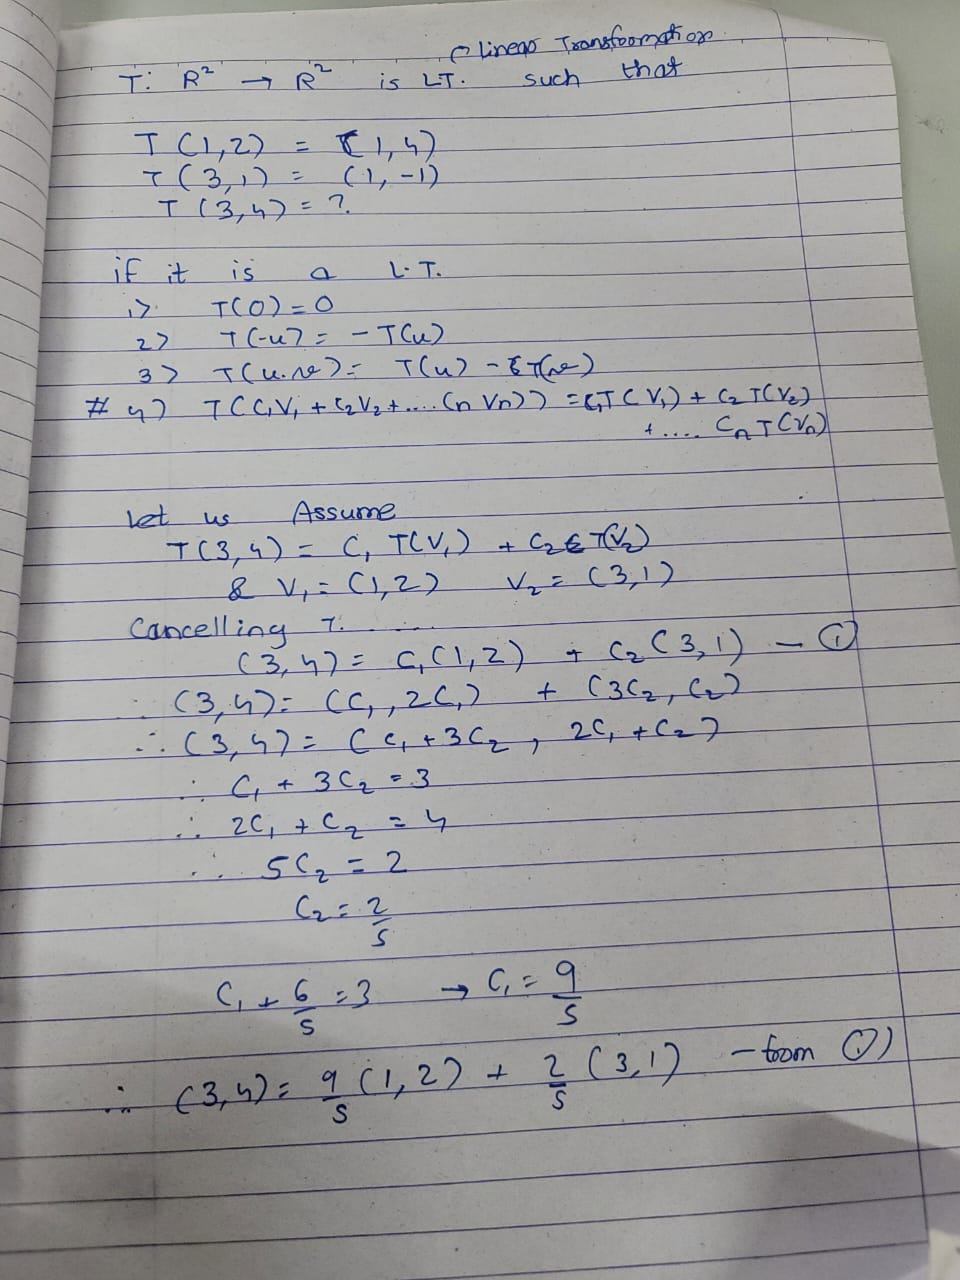 Linear Transformation
T: R² → R² is L.T. such that
T (1,2) = (1,4)
T (3,1) = (1,-1)
T (3,4) = ?
if it is a L.T.
1> T(0) = 0
2> T(-u) = - T(u)
3> T(u.v) = T(u) - T(v)
# 4) T(C₁V₁ + C₂V₂ + .... Cn Vn)) = C₁T(V₁) + C₂ T(V₂)
+ .... Cn T(Vn)
Let us Assume
T(3,4) = C₁ T(V₁) + C₂ T(V₂)
& V₁ = (1,2) V₂ = (3,1)
Cancelling T.
(3,4) = C₁(1,2) + C₂(3,1) — ①
∴ (3,4) = (C₁, 2C₁) + (3C₂, C₂)
∴ (3,4) = (C₁ + 3C₂, 2C₁ + C₂)
∴ C₁ + 3C₂ = 3
∴ 2C₁ + C₂ = 4
∴ 5C₂ = 2
C₂ = 2/5
C₁ + 6/5 = 3 → C₁ = 9/5
∴ (3,4) = 9/5 (1,2) + 2/5 (3,1) - from ①)